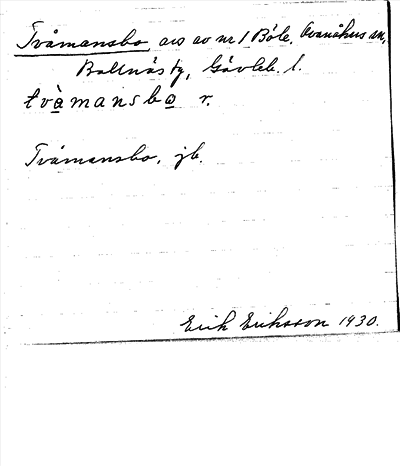 Tvåmansbo, avs av nr 1 Böle, Ovanåkers sn,
Bollnäs tg, Gävleb. l.
tvàmansbo r.
Tvåmansbo, jb.
Erik Eriksson 1930.